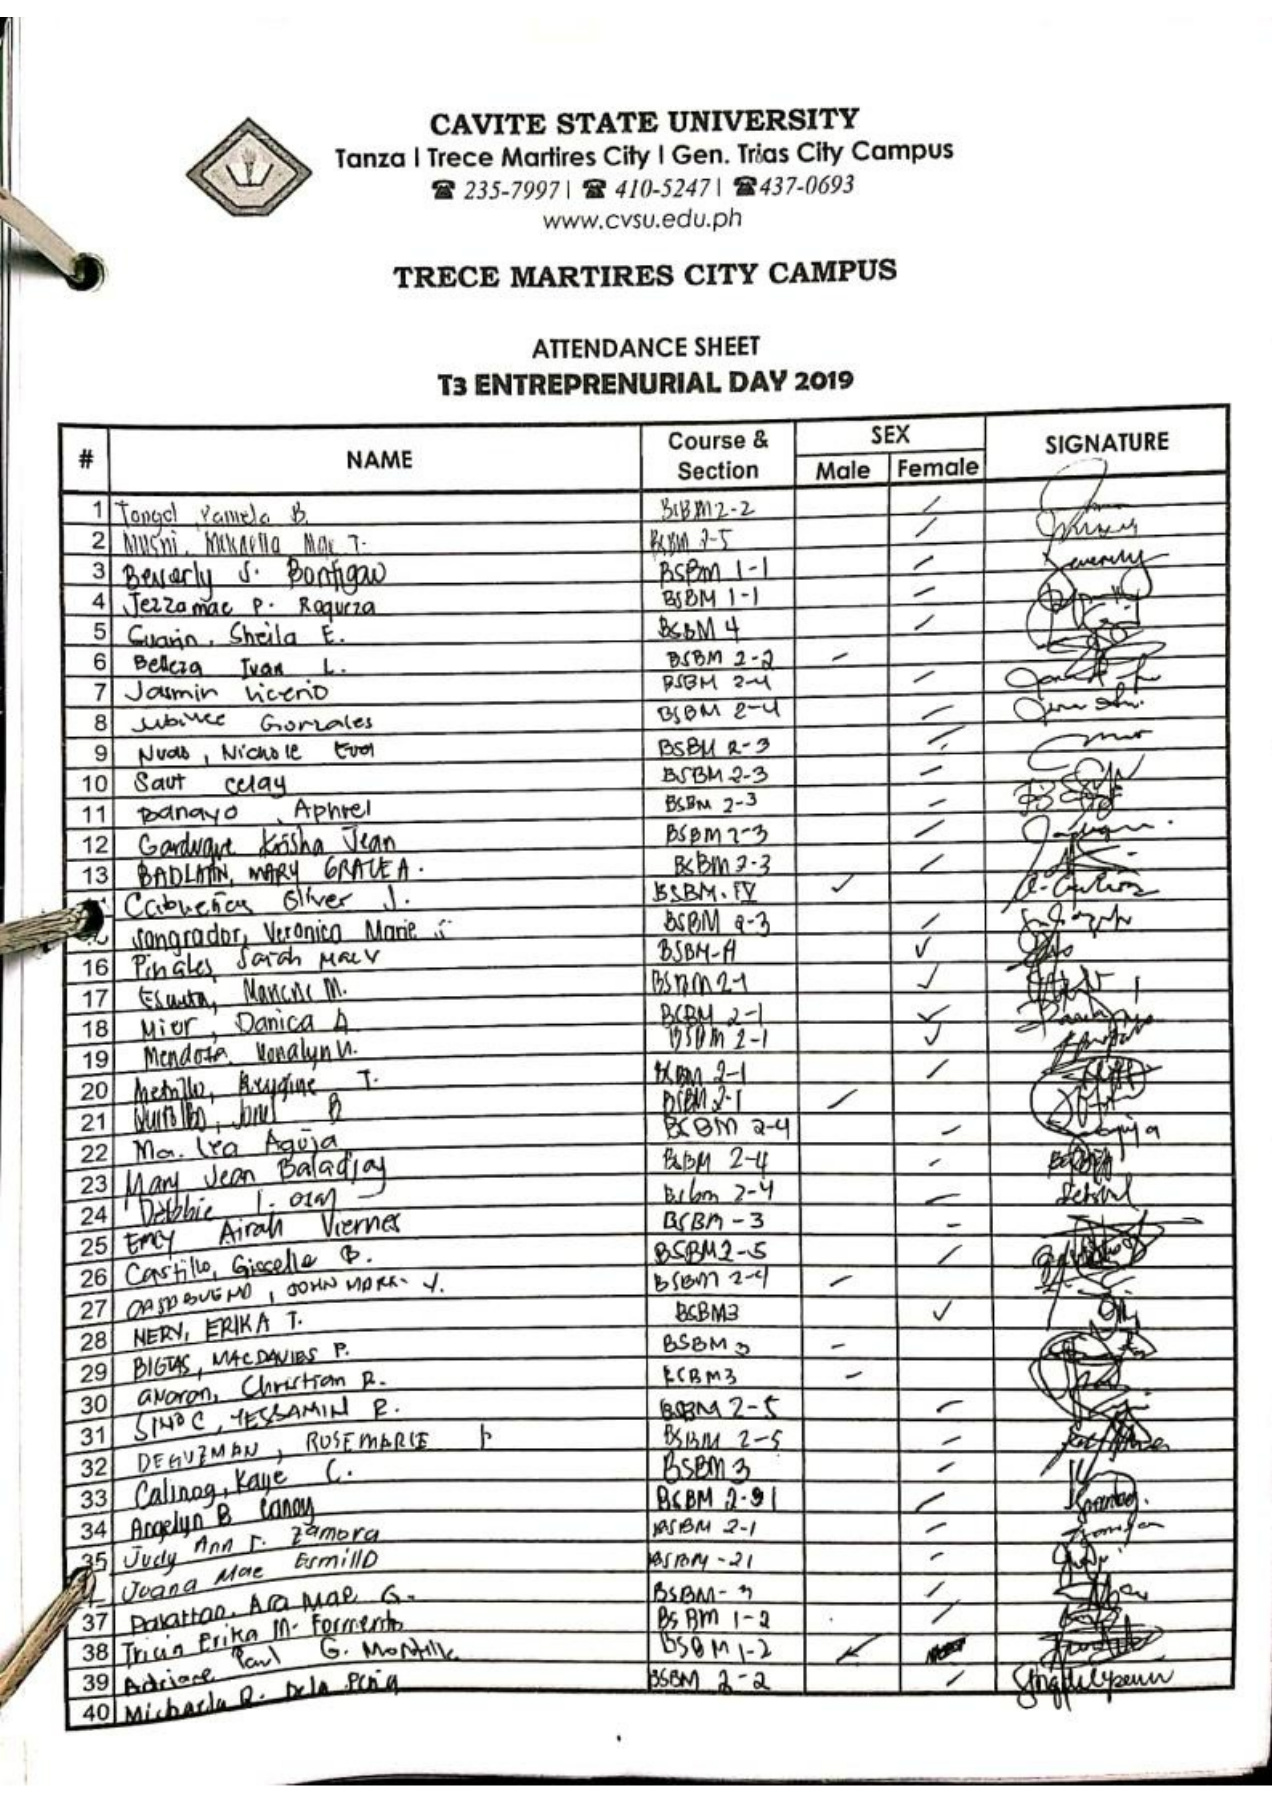 CAVITE STATE UNIVERSITY
Tanza | Trece Martires City | Gen. Trias City Campus
☎ 235-7997 | ☎ 410-5247 | ☎ 437-0693
www.cvsu.edu.ph
TRECE MARTIRES CITY CAMPUS
ATTENDANCE SHEET
T3 ENTREPRENURIAL DAY 2019
# NAME Course & Section SEX Male Female SIGNATURE
1 Tongol, Pamela B. BSBM 2-2
2 Musni, Mikaella Mae T. BSBM 2-5
3 Beverly S. Bonfigao BSBM 1-1
4 Jezzamae P. Roqueza BSBM 1-1
5 Guarin, Sheila E. BSBM 4
6 Belleza Ivan L. BSBM 2-2
7 Jasmin Vicerio BSBM 2-4
8 Gonzales BSBM 2-4
9 Nichole BSBM 2-3
10 Saut BSBM 2-3
11 Banayo, Aphrel BSBM 2-3
12 Garduque Krisha Jean BSBM 2-3
13 BADLATIN, MARY GRACE A. BSBM 2-3
Cabueñas Oliver J. BSBM-IV
Songrador, Veronica Marie BSBM 2-3
16 Pinales, Sarah Mae V BSBM-4
17 M. BSBM 2-1
18 Mier, Danica A BSBM 2-1
19 Mendoza, Ronalyn BSBM 2-1
20 T. BSBM 2-1
21 B BSBM 2-1
22 Ma. Lea Aguja BSBM 2-4
23 Mary Jean Baladjay BSBM 2-4
24 Debbie BSBM 2-4
25 Emcy Airah Viernes BSBM-3
26 Castillo, Gisselle B. BSBM 2-5
27 JOHN MARK V. BSBM 2-4
28 NERY, ERIKA T. BSBM3
29 BIGTAS, MACDAVIES P. BSBM 3
30 Christian R. BSBM3
31 SINOC, JESSAMIN R. BSBM 2-5
32 DEGUZMAN, ROSEMARIE BSBM 2-5
33 Calinog, Kaye C. BSBM 3
34 Angelyn B Canoy BSBM
35 Judy Ann Zamora BSBM 2-1
Juana Mae Esmillo BSBM-21
37 Ara Mae G. BSBM-3
38 Tricia Erika M. Formento BSBM 1-2
39 Adriane Paul G. Montilla BSBM 1-2
40 Michaela R. Dela Peña BSBM 2-2